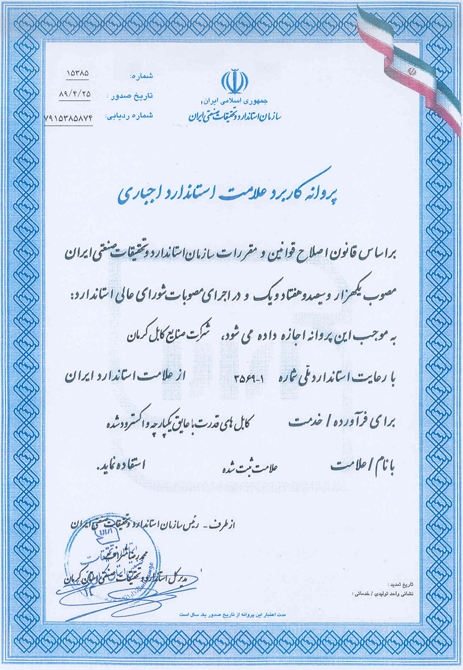 جمهوری اسلامی ایران
سازمان استاندارد و تحقیقات صنعتی ایران
شماره: ۱۵۳۸۵
تاریخ صدور: ۸۹/۴/۲۵
شماره ردیابی: ۷۹۱۵۳۸۵۸۷۴
پروانه کاربرد علامت استاندارد اجباری
بر اساس قانون اصلاح قوانین و مقررات سازمان استاندارد و تحقیقات صنعتی ایران
مصوب یکهزار و سیصد و هفتاد و یک و در اجرای مصوبات شورای عالی استاندارد:
به موجب این پروانه اجازه داده می شود، شرکت صنایع کابل کرمان
با رعایت استاندارد ملی شماره ۱-۳۵۶۹ از علامت استاندارد ایران
برای فرآورده / خدمت کابل های قدرت با عایق یکپارچه و اکسترود شده
با نام / علامت علامت ثبت شده استفاده نماید.
از طرف - رئیس سازمان استاندارد و تحقیقات صنعتی ایران
محمدرضا
مدیر کل استاندارد و تحقیقات صنعتی استان کرمان
تاریخ تمدید:
نشانی واحد تولیدی / خدماتی:
مدت اعتبار این پروانه از تاریخ صدور یک سال است